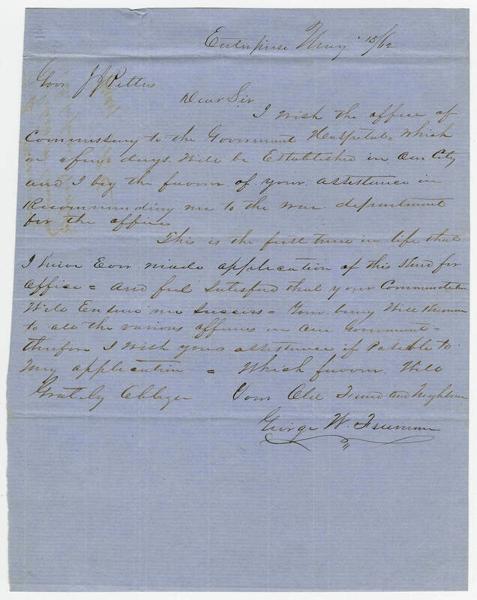 Enterprise May 15/62
Gov J J Pettus
Dear Sir
I wish the office of
Commissary to the Goverment Hospitals which
in a few days will be Established in our City
and I beg the favour of your assistance in
Recommending me to the war department
for the office
This is the first time in life that
I have Ever made application of this Kind for
office = and feel Satisfied that your
Will Ensure me Success = your being Well Known
to all the various affairs in our Goverment =
therefore I wish your assistance if Possible to
my application = Which favour Will
Gratly Oblige Your Old Friend and Neighbour
George W